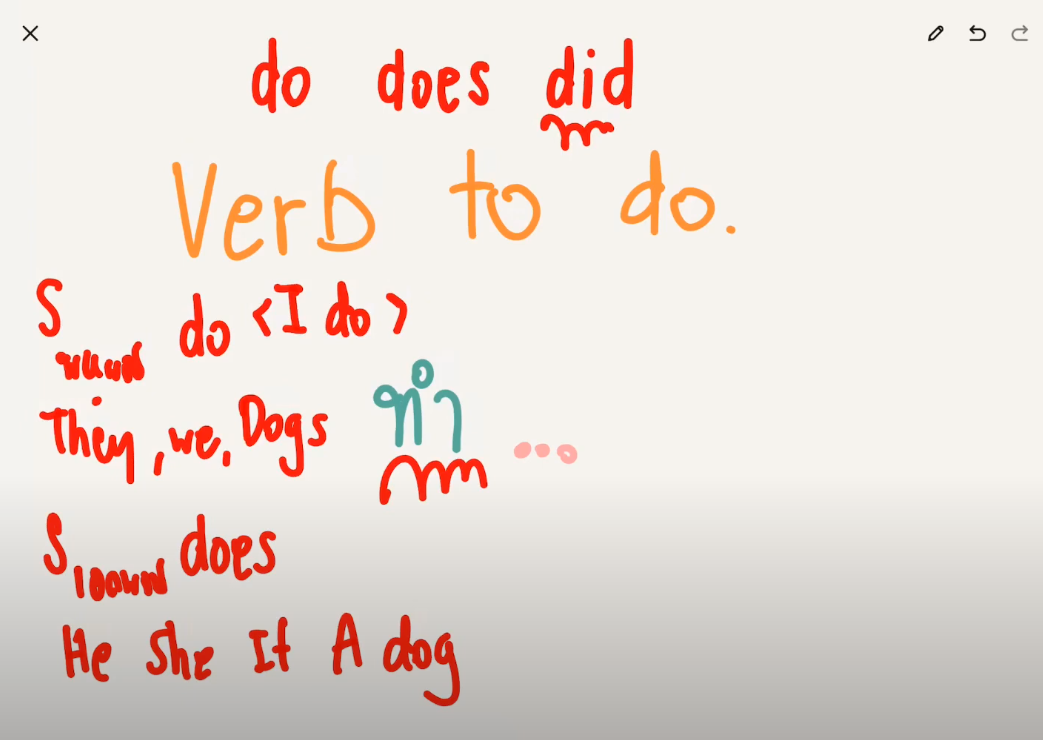 do does did
Verb to do.
S do <I do>
They, we, Dogs ทำ ...
S does
He She It A dog